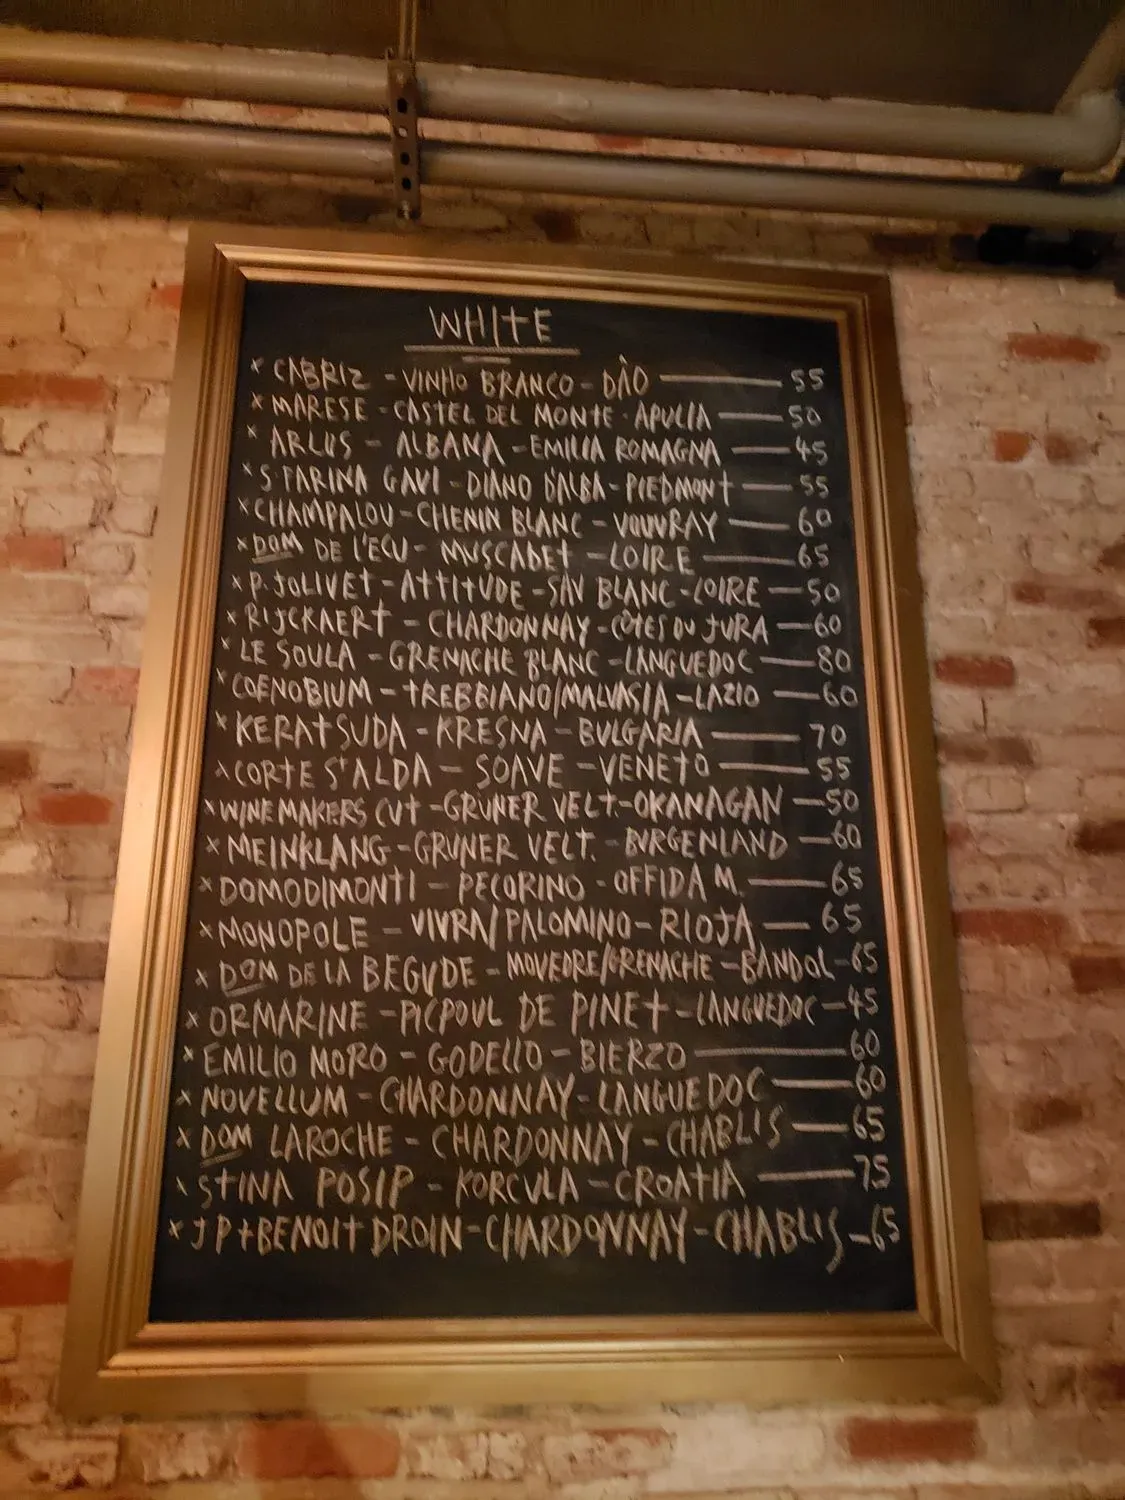 WHITE
x CABRIZ - VINHO BRANCO - DÀO — 55
x MARESE - CASTEL DEL MONTE - APULIA — 50
x ARLUS - ALBANA - EMILIA ROMAGNA — 45
x S. FARINA GAVI - DIANO D'ALBA - PIEDMONT — 55
x CHAMPALOU - CHENIN BLANC - VOUVRAY — 60
x DOM DE L'ECU - MUSCADET - LOIRE — 65
x P. JOLIVET - ATTITUDE - SAV BLANC - LOIRE — 50
x RIJCKAERT - CHARDONNAY - CÔTES DU JURA — 60
x LE SOULA - GRENACHE BLANC - LANGUEDOC — 80
x COENOBIUM - TREBBIANO/MALVASIA - LAZIO — 60
x KERATSUDA - KRESNA - BULGARIA — 70
x CORTE S'ALDA - SOAVE - VENETO — 55
x WINEMAKERS CUT - GRUNER VELT. - OKANAGAN — 50
x MEINKLANG - GRUNER VELT. - BURGENLAND — 60
x DOMODIMONTI - PECORINO - OFFIDA M. — 65
x MONOPOLE - VIVRA/PALOMINO - RIOJA — 65
x DOM DE LA BEGUDE - MOVEDRE/GRENACHE - BANDOL - 65
x ORMARINE - PICPOUL DE PINET - LANGUEDOC — 45
x EMILIO MORO - GODELLO - BIERZO — 60
x NOVELLUM - CHARDONNAY - LANGUEDOC — 60
x DOM LAROCHE - CHARDONNAY - CHABLIS — 65
x STINA POSIP - KORCULA - CROATIA — 75
x J P + BENOIT DROIN - CHARDONNAY - CHABLIS - 65